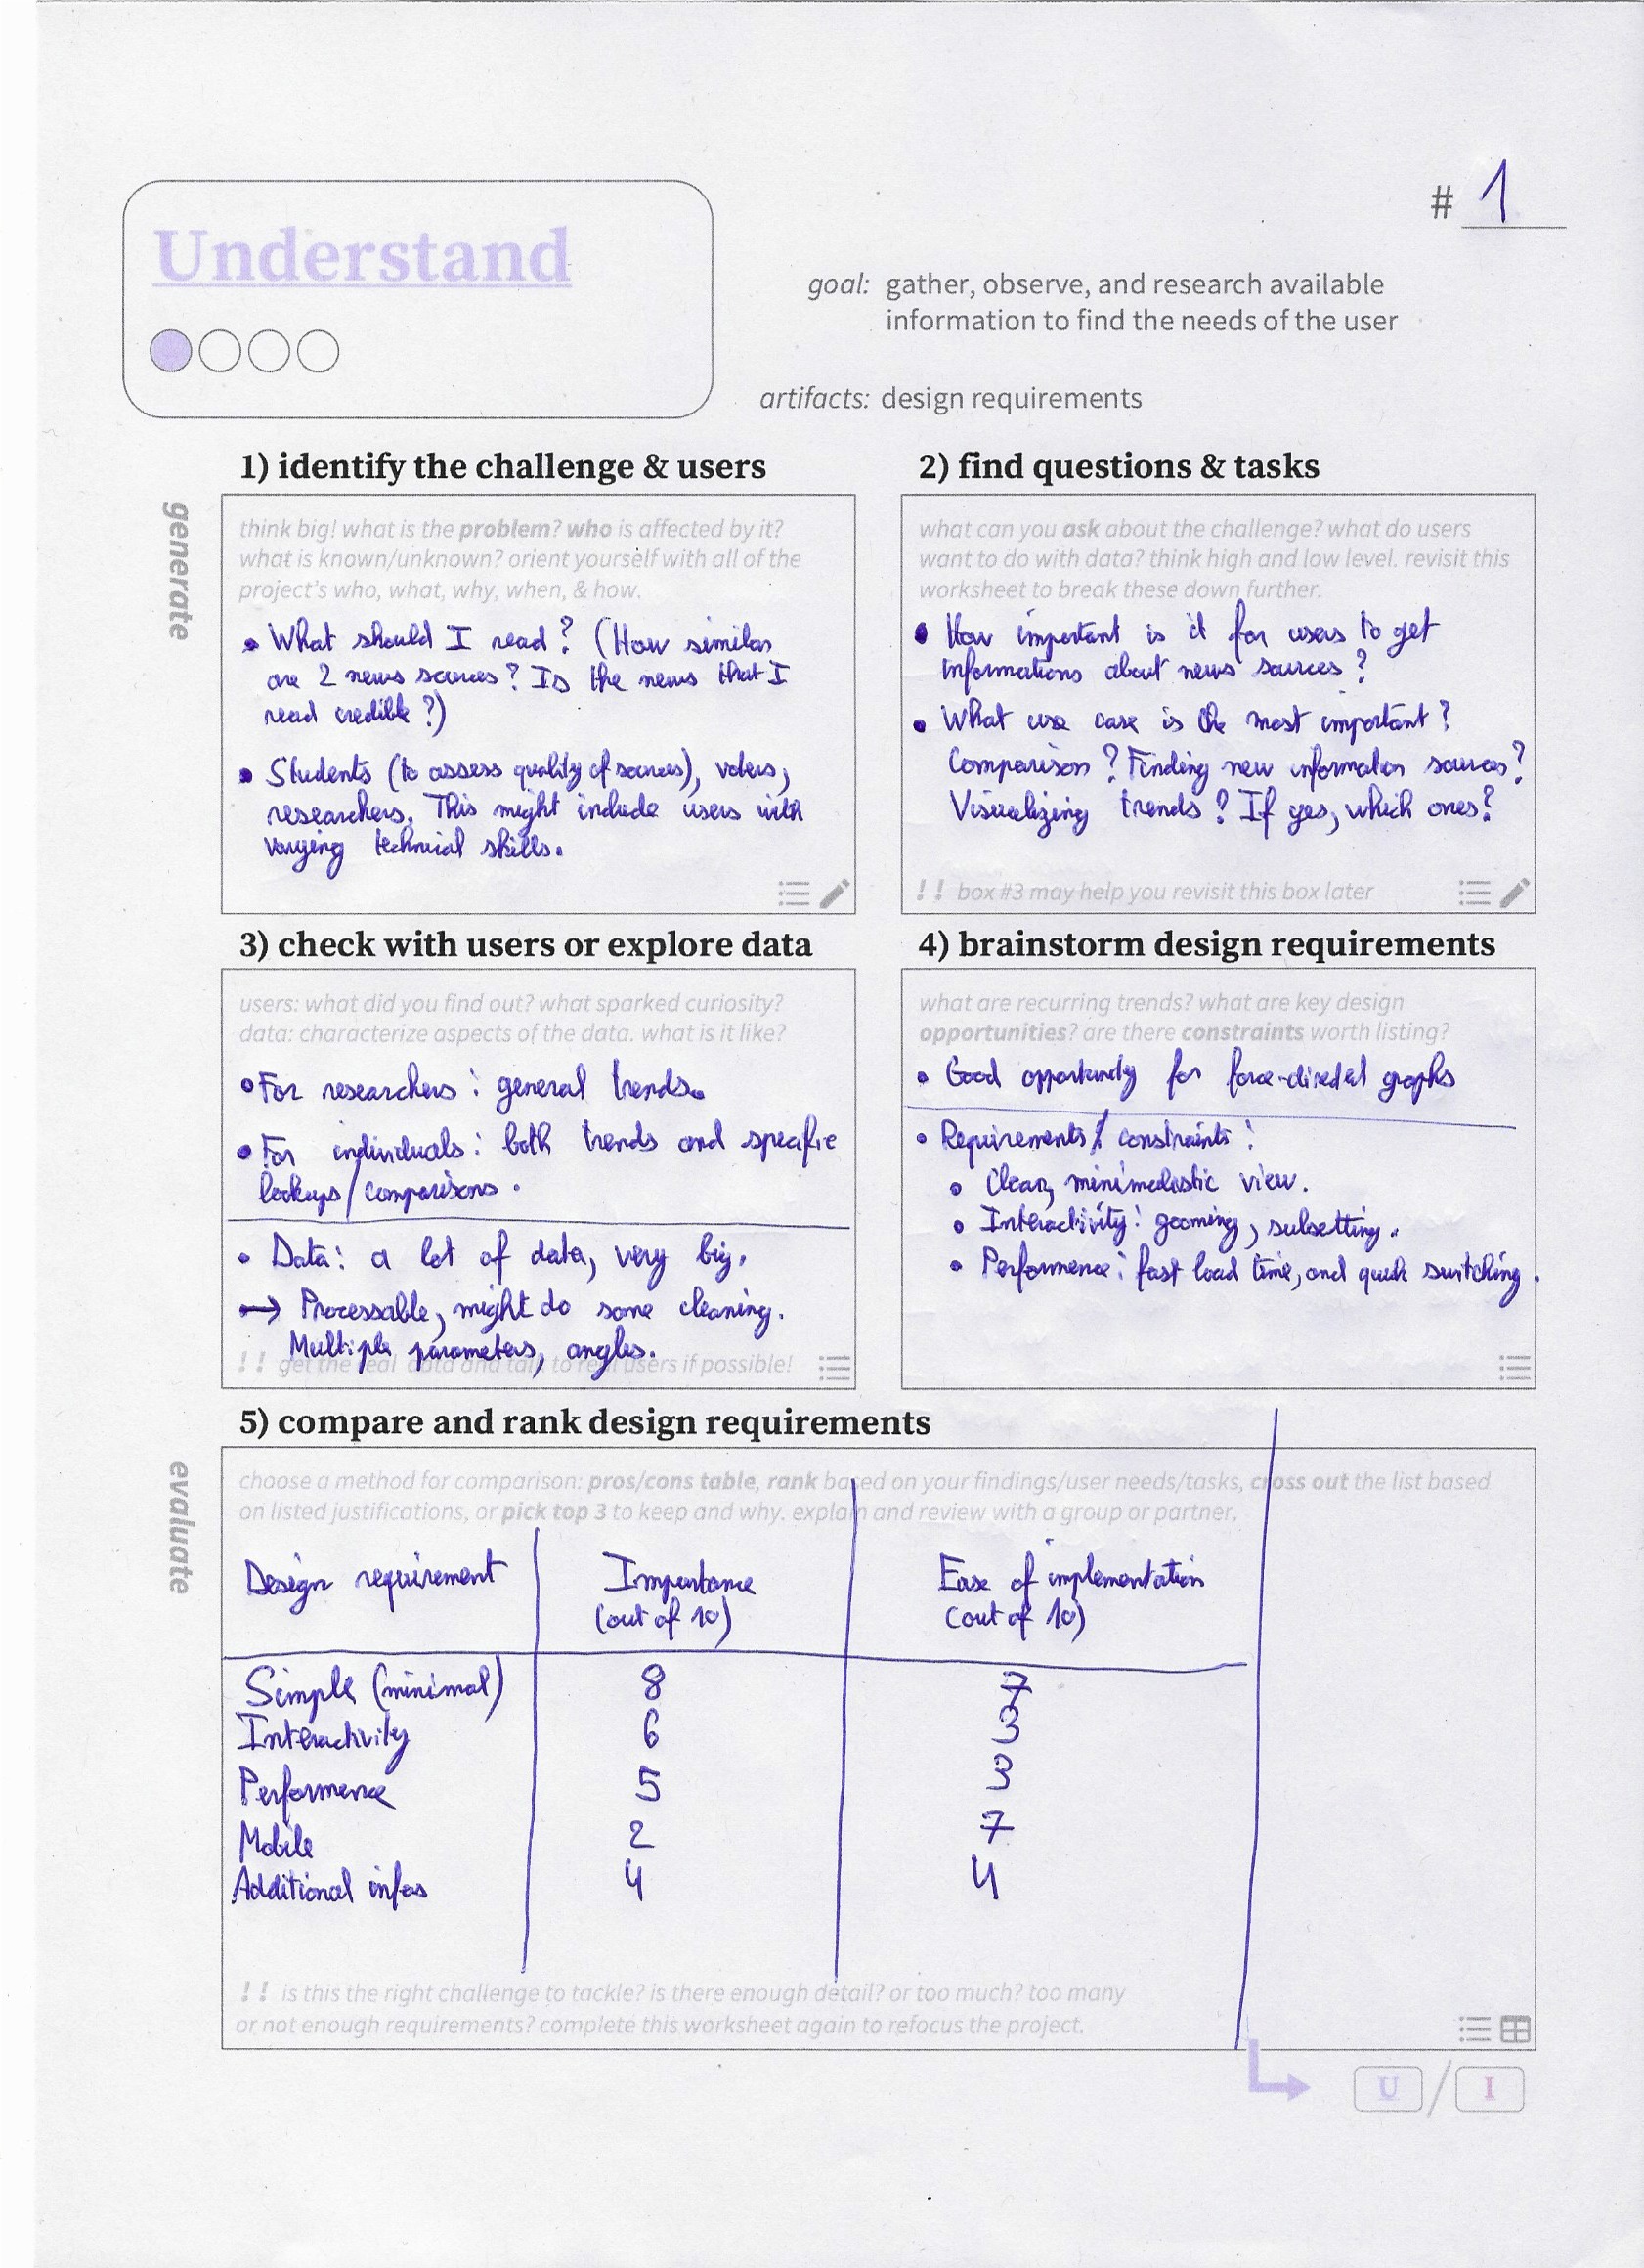 # 1
Understand
goal: gather, observe, and research available
information to find the needs of the user
artifacts: design requirements
generate
1) identify the challenge & users
think big! what is the problem? who is affected by it?
what is known/unknown? orient yourself with all of the
project's who, what, why, when, & how.
• What should I read? (How similar
are 2 news sources? Is the news that I
read credible?)
• Students (to assess quality of sources), voters,
researchers. This might include users with
varying technical skills.
2) find questions & tasks
what can you ask about the challenge? what do users
want to do with data? think high and low level. revisit this
worksheet to break these down further.
• How important is it for users to get
informations about news sources?
• What use case is the most important?
Comparison? Finding new information sources?
Visualizing trends? If yes, which ones?
!! box #3 may help you revisit this box later
3) check with users or explore data
users: what did you find out? what sparked curiosity?
data: characterize aspects of the data. what is it like?
• For researchers: general trends.
• For individuals: both trends and specific
lookups/comparisons.
• Data: a lot of data, very big.
→ Processable, might do some cleaning.
Multiple parameters, angles.
!! get the real data and talk to real users if possible!
4) brainstorm design requirements
what are recurring trends? what are key design
opportunities? are there constraints worth listing?
• Good opportunity for force-directed graphs
• Requirements/constraints:
• Clean, minimalistic view.
• Interactivity: zooming, subsetting.
• Performence: fast load time, and quick switching.
evaluate
5) compare and rank design requirements
choose a method for comparison: pros/cons table, rank based on your findings/user needs/tasks, cross out the list based
on listed justifications, or pick top 3 to keep and why. explain and review with a group or partner.
Design requirement Importance Ease of implementation
(out of 10) (out of 10)
Simple (minimal) 8 7
Interactivity 6 3
Performence 5 3
Mobile 2 7
Additional infos 4 4
!! is this the right challenge to tackle? is there enough detail? or too much? too many
or not enough requirements? complete this worksheet again to refocus the project.
U / I